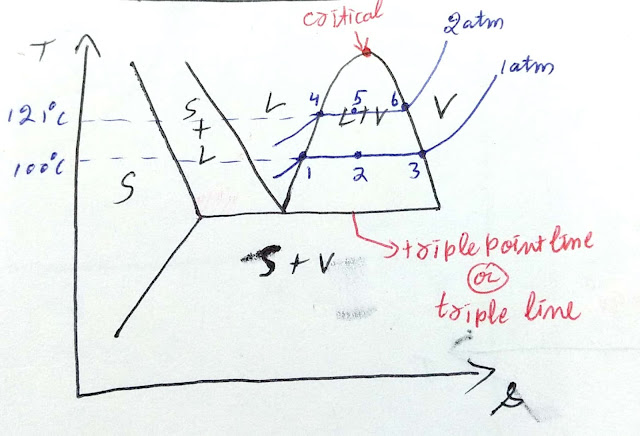 critical
T
2atm
1atm
S
+
L
L
4
5
6
L+V
V
121°C
100°C
1
2
3
S
S+V
triple point line
or
triple line
s